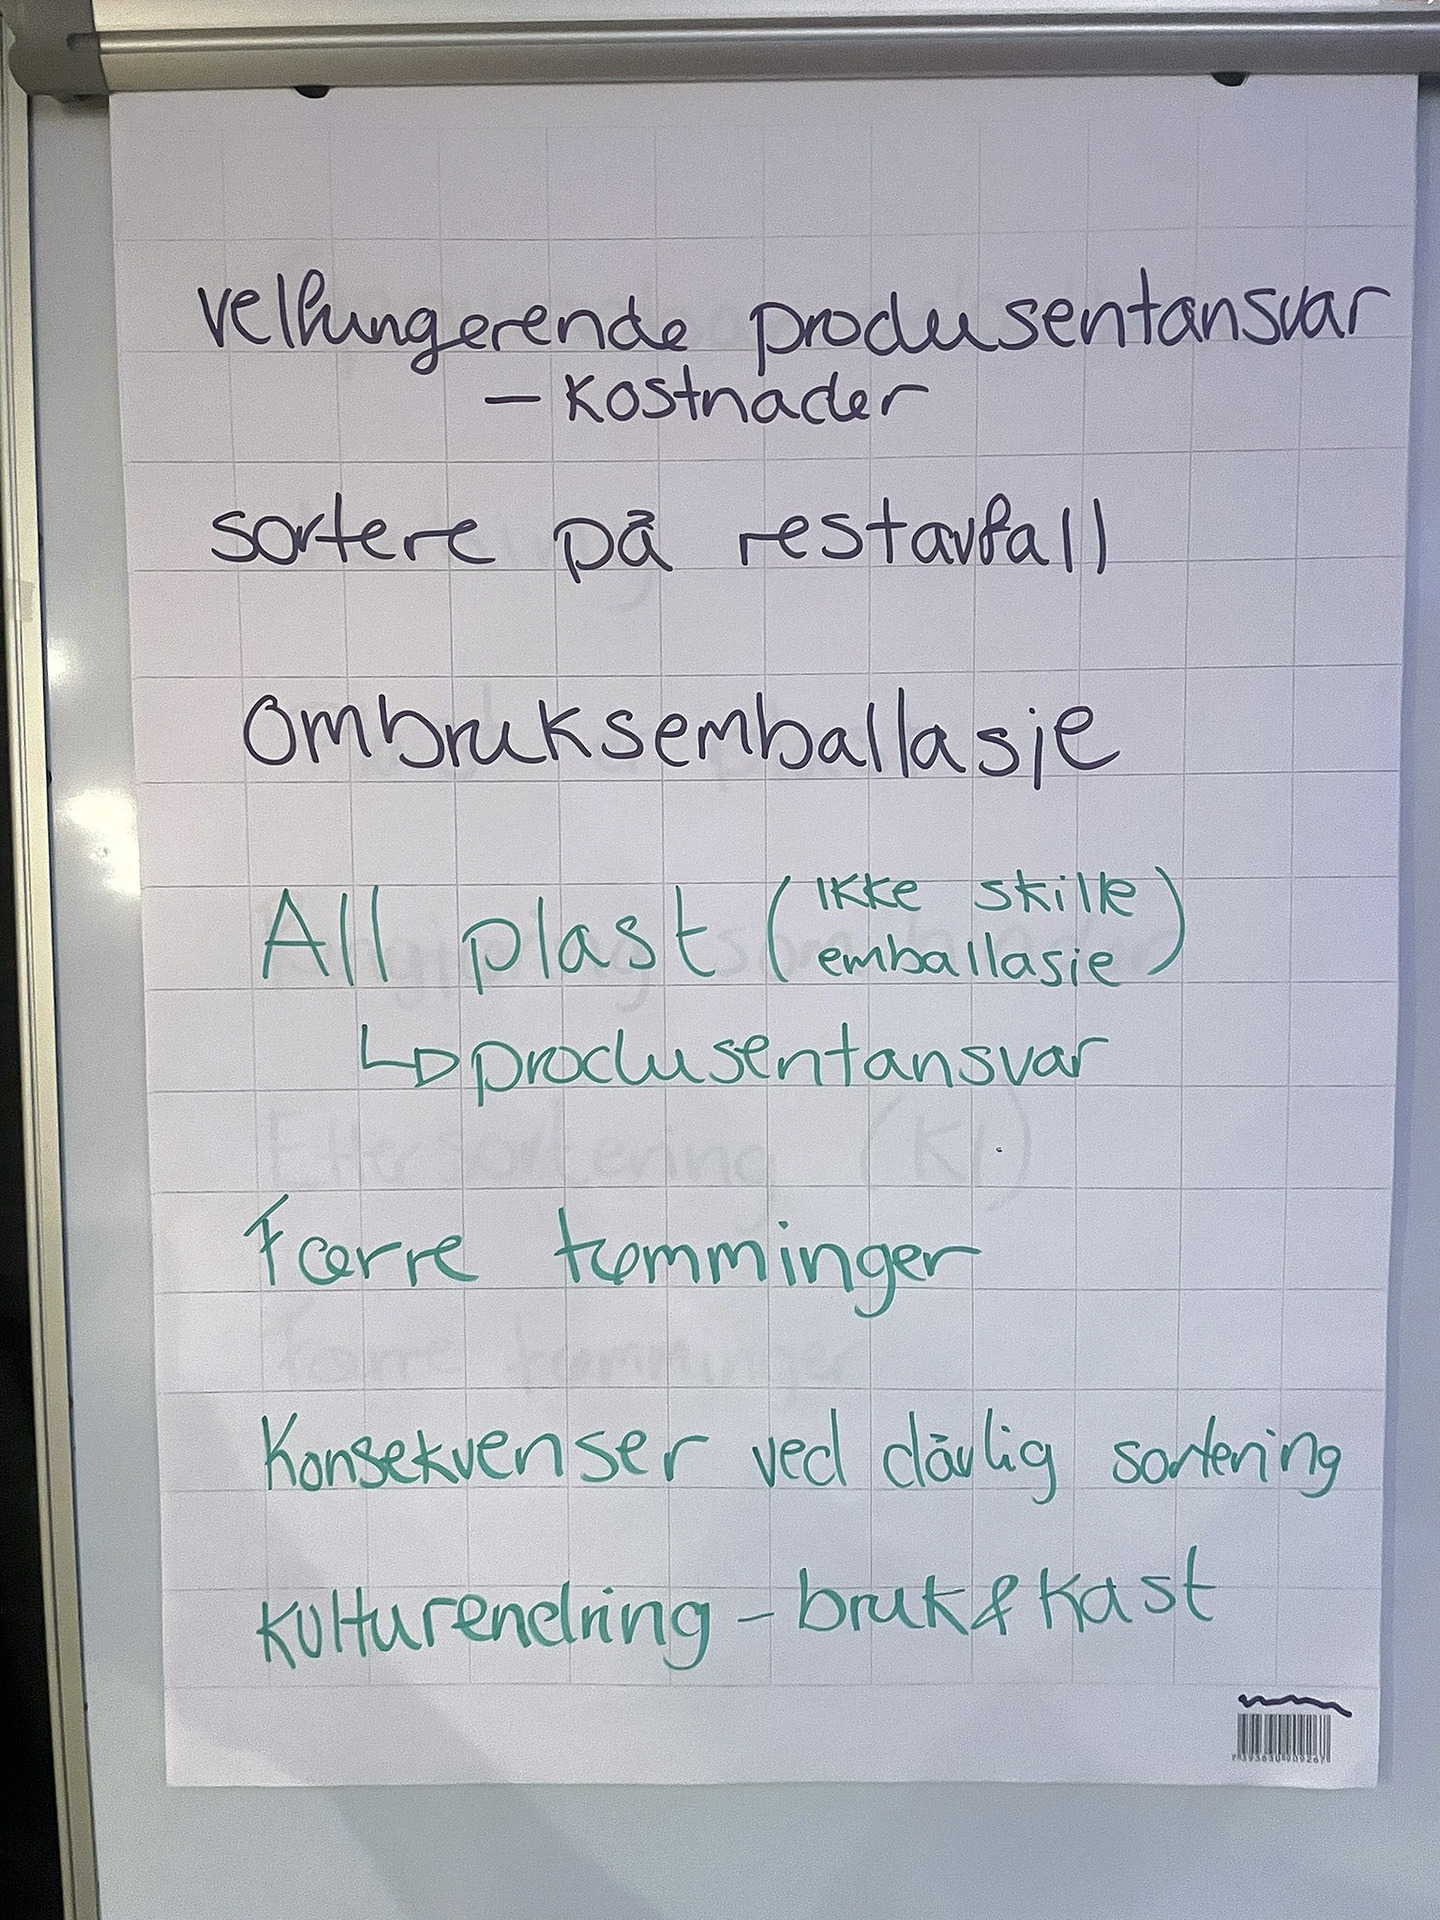 velfungerende produsentansvar
- Kostnader
sortere på restavfall
Ombruksemballasje
All plast (ikke skille
emballasje)
↳ produsentansvar
Ettersortering (KI)
Færre tømminger
Færre tømminger
Konsekvenser ved dårlig sortering
Kulturendring - bruk & kast